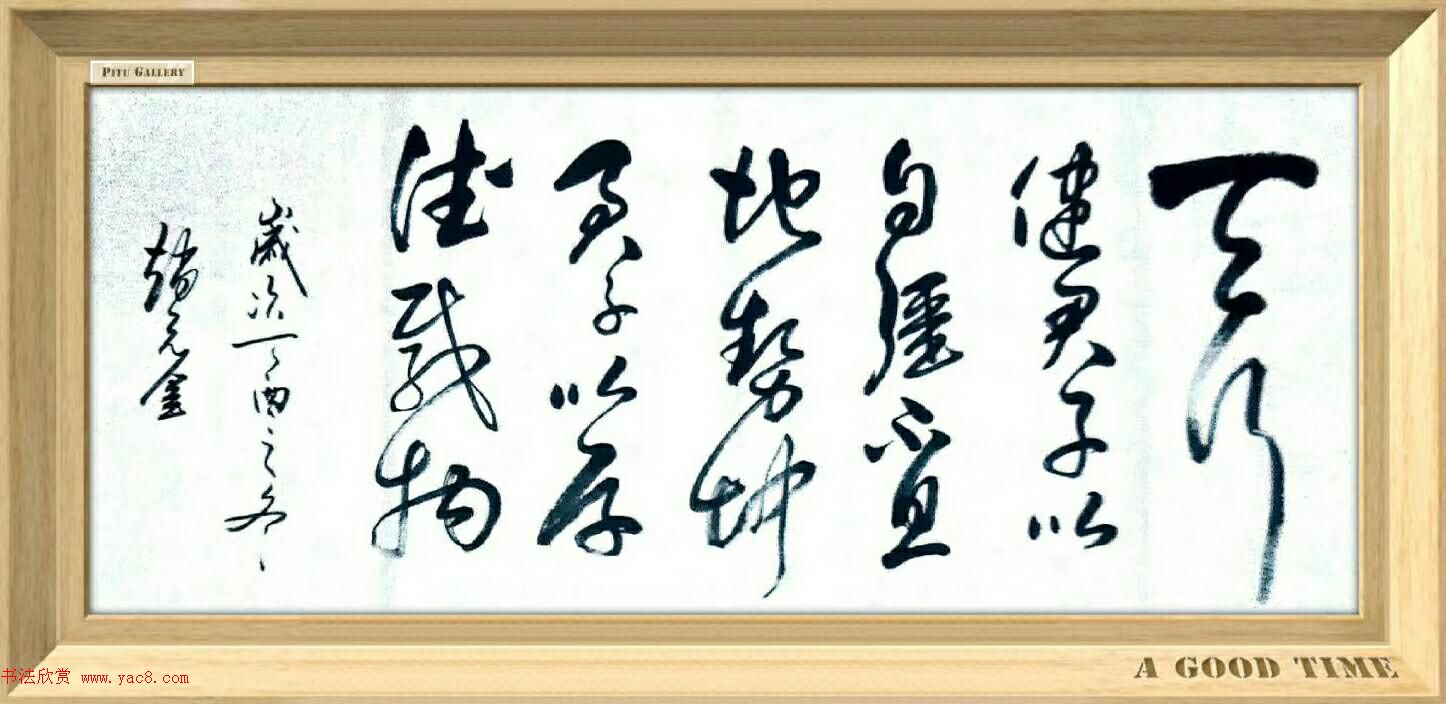 PITU GALLERY
天行
健君子以
自彊不息
地勢坤
君子以厚
德載物
歲次丁酉之冬
A GOOD TIME
书法欣赏 www.yac8.com